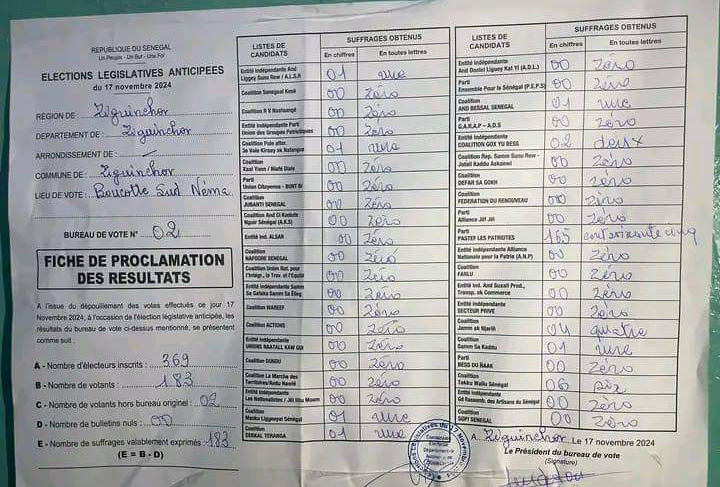 REPUBLIQUE DU SENEGAL
Un Peuple - Un But - Une Foi
ELECTIONS LEGISLATIVES ANTICIPEES
du 17 novembre 2024
REGION DE : Ziguinchor
DEPARTEMENT DE : Ziguinchor
ARRONDISSEMENT DE : —
COMMUNE DE : Ziguinchor
LIEU DE VOTE : Boucotte Sud Néma
BUREAU DE VOTE N° 02
FICHE DE PROCLAMATION
DES RESULTATS
A l'issue du dépouillement des votes effectués ce jour 17
Novembre 2024, à l'occasion de l'élection législative anticipée, les
résultats du bureau de vote ci-dessus mentionné, se présentent
comme suit :
A - Nombre d'électeurs inscrits : 369
B - Nombre de votants : 183
C - Nombre de votants hors bureau originel : 02
D - Nombre de bulletins nuls : 00
E - Nombre de suffrages valablement exprimés : 183
(E = B - D)
LISTES DE CANDIDATS
SUFFRAGES OBTENUS
En chiffres En toutes lettres
Entité Indépendante And
Liggey Sunu Rew / A.L.S.R 01 une
Coalition Senegaal Kesé 00 Zéro
Coalition R V Naataangé 00 Zéro
Entité Indépendante Parti
Union des Groupes Patriotiques 00 Zéro
Coalition Pole alter.
3e Voie Kirsay ak Natangue 01 une
Coalition
Xaal Yoon / 00 Zéro
Parti
Union Citoyenne - BUNT BI 00 Zéro
Coalition
JUBANTI SENEGAL 00 Zéro
Coalition And Ci Koolute
Nguir Sénégal (A.K.S) 00 Zéro
Entité Ind. ALSAR 00 Zéro
Coalition
NAFOORE SENEGAL 00 Zéro
Coalition Union Nat. pour
l'Intégr., le Trav. et l'Equité 00 Zéro
Entité Indépendante Samm
Sa Gafaka Samm Sa Ëllëg 00 Zéro
Coalition WAREEF 00 Zéro
Coalition ACTIONS 00 Zéro
Entité Indépendante
UNIONS NAATALL KAW GUI 00 Zéro
Coalition DUNDU 00 Zéro
Coalition La Marche des
Territoires/Andu Nawlé 00 Zéro
Entité Indépendante
Les Nationalistes / Jël Liñu Moom 00 Zéro
Coalition
Manko Liggeeyal Sénégal 01 une
Coalition
DEKKAL TERANGA 01 une
LISTES DE CANDIDATS
SUFFRAGES OBTENUS
En chiffres En toutes lettres
Entité Indépendante
And Doolel Liguey Kat Yi (A.D.L) 00 Zéro
Parti
Ensemble Pour le Sénégal (P.E.P.S) 00 Zéro
Coalition
AND BESSAL SENEGAL 01 une
Parti
G.A.R.A.P - A.D.S 00 zéro
Entité Indépendante
COALITION GOX YU BESS 02 deux
Coalition Rep. Samm Sunu Rew -
Jotali Kaddu Askanwi 00 Zéro
Coalition
DEFAR SA GOKH 00 Zéro
Coalition
FEDERATION DU RENOUVEAU 00 zéro
Parti
Alliance Jëf Jël 00 Zéro
Parti
PASTEF LES PATRIOTES 165 cent soixante cinq
Entité Indépendante Alliance
Nationale pour la Patrie (A.N.P) 00 Zéro
Coalition
FARLU 00 Zéro
Entité Ind. And Suxali Prod.,
Transp. ak Commerce 00 Zéro
Entité Indépendante
SECTEUR PRIVE 00 Zéro
Coalition
Jamm ak Njariñ 04 quatre
Coalition
Samm Sa Kaddu 01 une
Parti
BESS DU ÑAAK 00 Zéro
Coalition
Takku Wallu Sénégal 06 six
Entité Indépendante
Gd Rassemb. des Artisans du Sénégal 00 Zéro
Coalition
SOPI SENEGAL 00 Zéro
A. Ziguinchor Le 17 novembre 2024
Le Président du bureau de vote
(Signature)